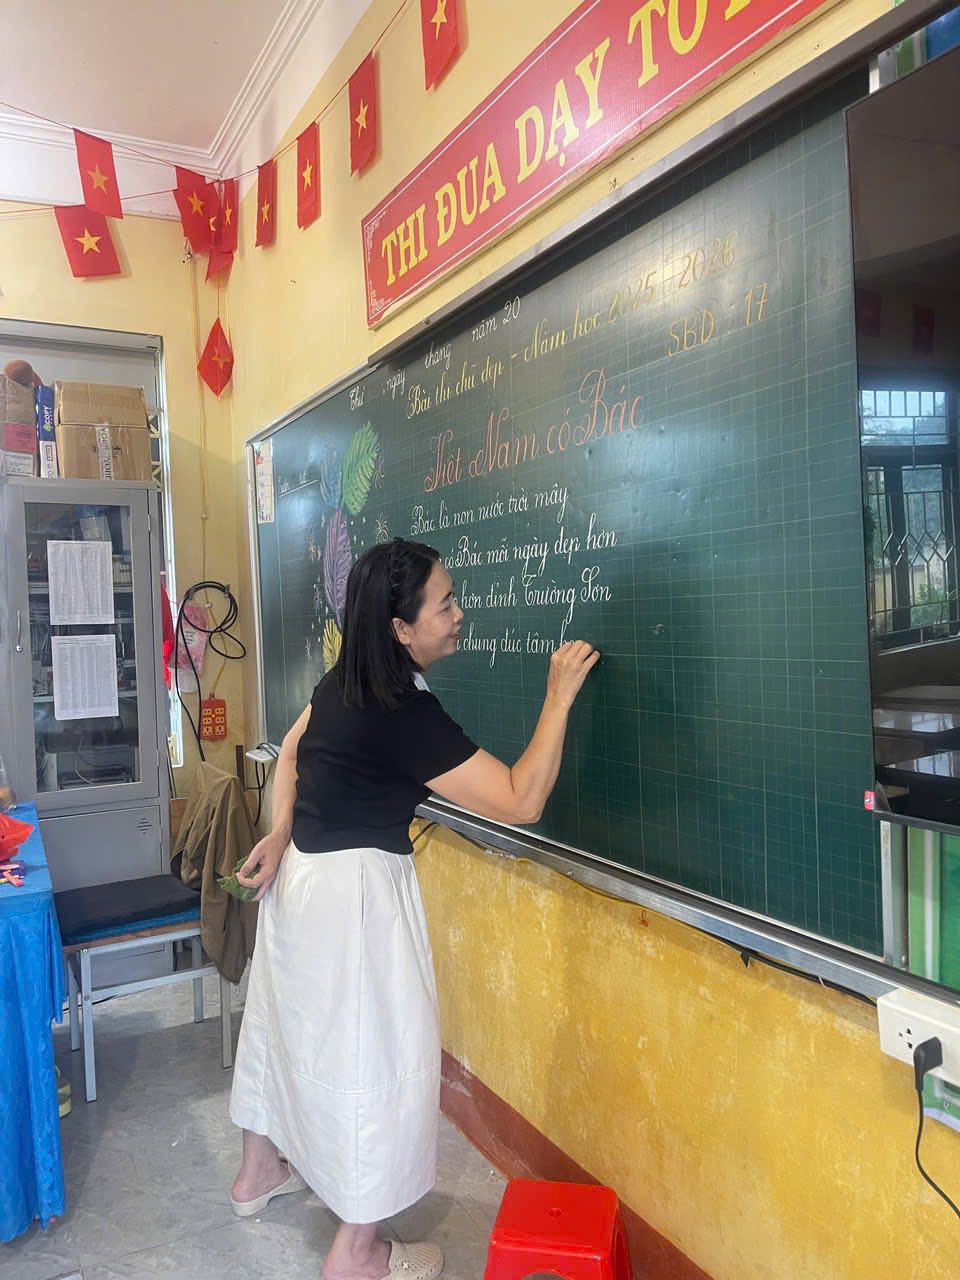 THI ĐUA DẠY TỐ
Thứ ngày tháng năm 20
Bài thi chữ đẹp - Năm học 2025 - 2026
SBD : 17
Việt Nam có Bác
Bác là non nước trời mây
có Bác mỗi ngày đẹp hơn
hơn đỉnh Trường Sơn
chung đúc tâm